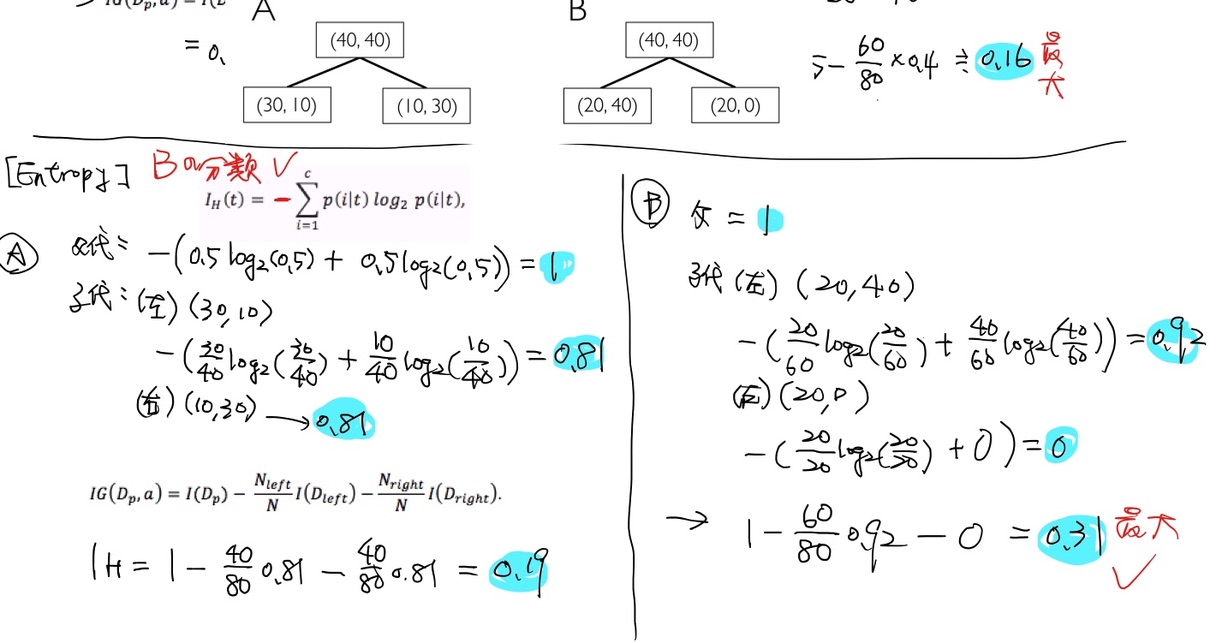 A
B
= 0.
(40, 40)
(30, 10)
(10, 30)
(40, 40)
(20, 40)
(20, 0)
5 - 60/80 × 0.4 ≒ 0.16 最大
[Entropy] B の分類 ✓
I_H(t) = - ∑_{i=1}^{c} p(i|t) log₂ p(i|t),
Ⓐ 父代: -(0.5 log₂(0.5) + 0.5 log₂(0.5)) = 1
子代: (左) (30, 10)
-(30/40 log₂(30/40) + 10/40 log₂(10/40)) = 0.81
(右) (10, 30) → 0.81
IG(D_p, a) = I(D_p) - N_left/N I(D_left) - N_right/N I(D_right).
IH = 1 - 40/80 0.81 - 40/80 0.81 = 0.19
Ⓑ 父 = 1
子代 (左) (20, 40)
-(20/60 log₂(20/60) + 40/60 log₂(40/60)) = 0.92
(右) (20, 0)
-(20/20 log₂(20/20) + 0) = 0
→ 1 - 60/80 0.92 - 0 = 0.31 最大 ✓